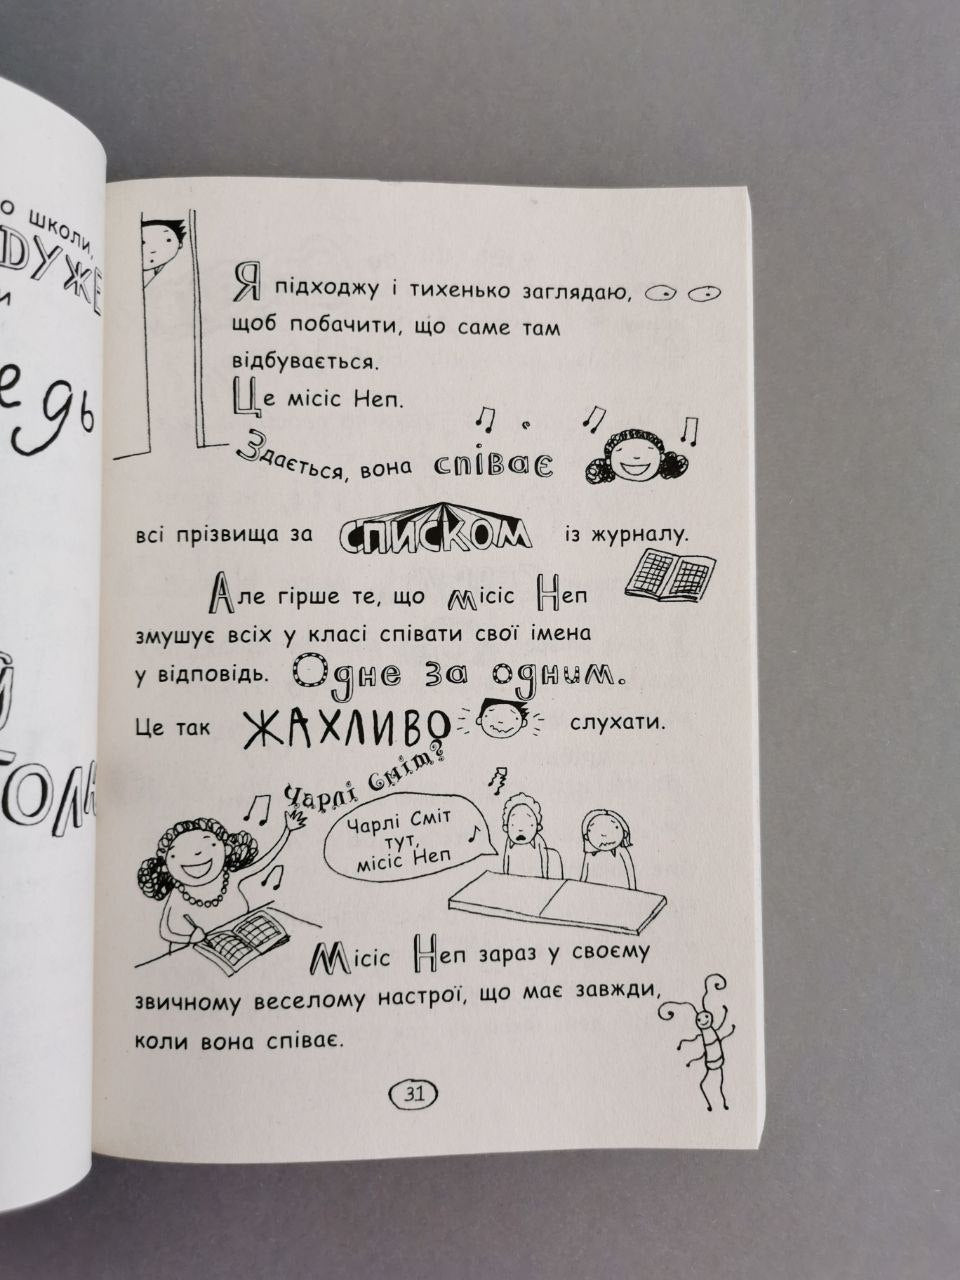 о школи,
ДУЖЕ
и
Я підходжу і тихенько заглядаю,
щоб побачити, що саме там
відбувається.
Це місіс Неп.
Здається, вона співає
всі прізвища за СПИСКОМ із журналу.
Але гірше те, що місіс Неп
змушує всіх у класі співати свої імена
у відповідь. Одне за одним.
Це так ЖАХЛИВО слухати.
Чарлі Сміт?
Чарлі Сміт
тут,
місіс Неп
Місіс Неп зараз у своєму
звичному веселому настрої, що має завжди,
коли вона співає.
31